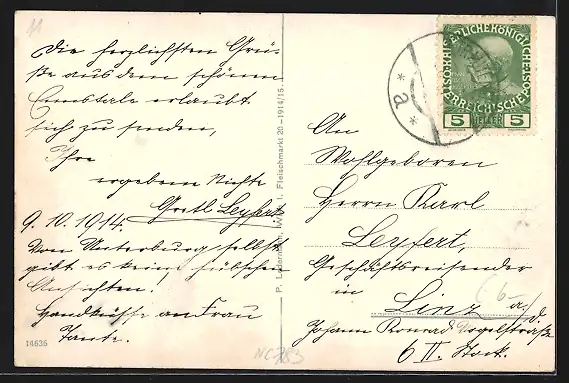 11
Die herzlichsten Grü-
ße aus dem schönen
Ennstale erlaubt
sich zu senden,
Ihre
ergebene Nichte
Gretl Leyfert
9. 10. 1914.
Von Unterburg selbst
gibt es keine hübschen
Ansichten.
Handküsse an Frau
Tante.
14636
NC783
Fleischmarkt 20 - 1914/15.
KAISERLICHE KÖNIGLICHE ÖSTERREICHISCHE POST
5 HELLER 5
* a *
An
Wohlgeboren
Herrn Karl
Leyfert,
Geschäftsreisender
in
Linz a/d.
Johann Konrad Vogelstraße
6 II. Stock.